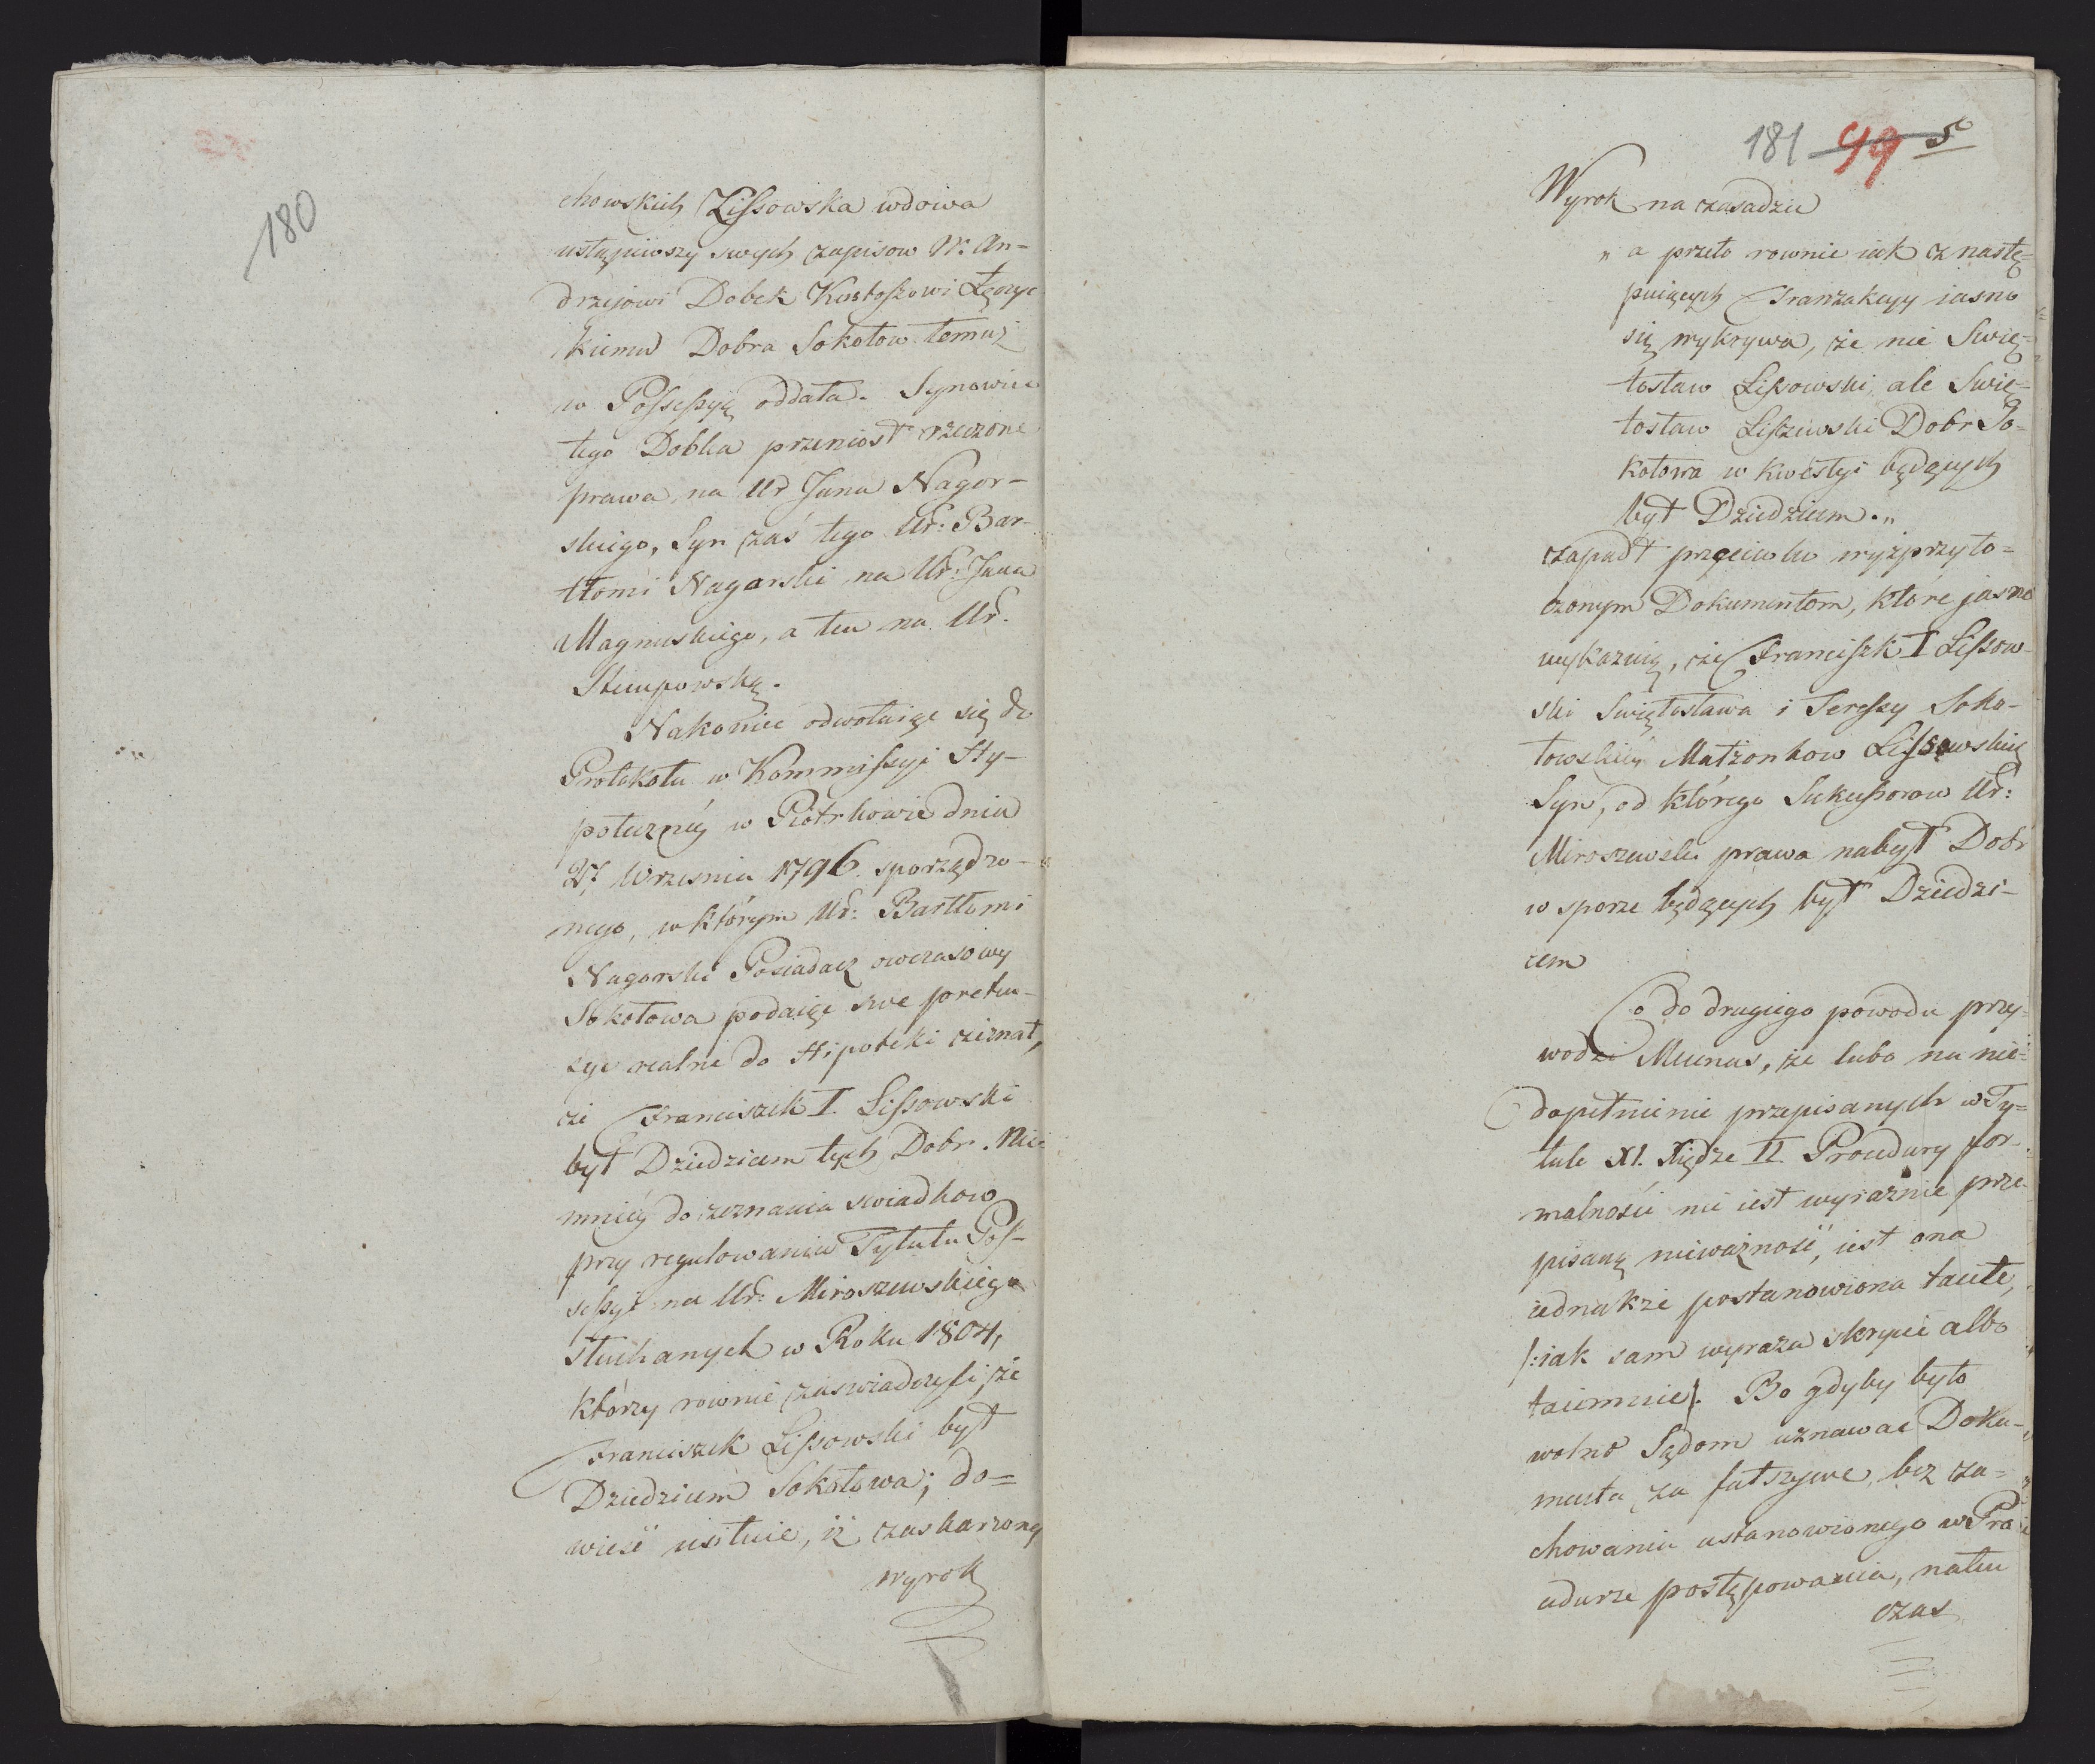 180
chowskich Lissowska wdowa
ustąpiwszy swych zapisow W. An-
drzejowi Dobek Kustoszowi Łęczyc
kiemu Dobra Sokołow temuż
w Possessyą oddała. Synowiec
tego Dobka przeniosł rzeczone
prawa, na Ur Jana Nagor-
skiego, Syn zaś tego Ur: Bar-
tłomi Nagorski na Ur: Jana
Magnuskiego, a ten na Ur.
Stempowską.
Nakoniec odwołuiąc się do
Protokołu w Kommissyi Hy-
poteczney w Piotrkowie dnia
27 Wrzesnia 1796. sporządzo-
nego, w którym Ur: Bartłomi
Nagorski Posiadacz owczasowy
Sokołowa podaiąc swe preten-
sye realne do Hipoteki zeznał,
że Franciszek I. Lissowski
był Dziedzicem tych Dobr. Nie-
mniey do zeznania swiadkow
przy regulowaniu Tytułu Pos-
sessyi na Ur: Miroszewskiego
słuchanych w Roku 1804,
którzy rownie zaswiadczyli, że
Franciszek Lissowski był
Dziedzicem Sokołowa; do=
wieść usiłuie, iż zaskarzony
wyrok
181 99 5
Wyrok na zasadzie
„ a przeto rownie iak z nastę=
puiących Tranzakcyy iasno
się wykrywa, że nie Swię=
tosław Lissowski, ale Swię-
tosław Liszewski Dobr So-
kołowa w kwestyi będących
był Dziedzicem.„
zapadł przeciwko wyżprzyto=
czonym Dokumentom, które jasno
wykazuią, że Franciszek I Lissow-
ski Swiętosława i Teressy Soko-
łowskiey Małżonkow Lissowskich
Syn, od którego Sukcessorow Ur:
Miroszewski prawa nabył Dobr
w sporze będących był Dziedzi-
cem
Co do drugiego powodu przy-
wodzi Mecenas, że lubo na nie-
dopełnienie przepisanych w Ty=
tule XI. Xiędze II. Procedury for-
malności nie iest wyraźnie prze-
pisaną nieważność, iest ona
iednakże postanowiona tacite,
/:iak sam wyraża skrycie albo
taiemnie/. Bo gdyby było
wolno Sądom uznawac Doku-
menta za fałszywe, bez za=
chowania ustanowionego w Pro
cedurze postępowania, naten
czas